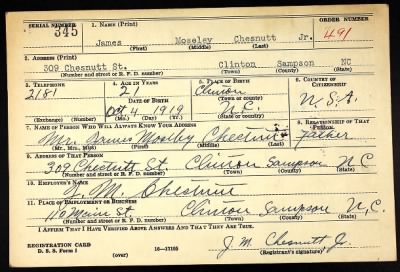 SERIAL NUMBER 345
1. NAME (Print)
ORDER NUMBER 491
James Moseley Chesnutt Jr.
(First) (Middle) (Last)
2. ADDRESS (Print)
309 Chesnutt St. Clinton Sampson NC
(Number and street or R. F. D. number) (Town) (County) (State)
3. TELEPHONE
4. AGE IN YEARS
5. PLACE OF BIRTH
6. COUNTRY OF CITIZENSHIP
2181
21
Clinton
(Town or county)
DATE OF BIRTH
Oct 4 1919
N.C.
U.S.A.
(Exchange) (Number)
(Mo.) (Day) (Yr.)
(State or country)
7. NAME OF PERSON WHO WILL ALWAYS KNOW YOUR ADDRESS
8. RELATIONSHIP OF THAT PERSON
Mr. James Mosley Chestnutt Father
(Mr., Mrs., Miss) (First) (Middle) (Last)
9. ADDRESS OF THAT PERSON
309 Chestnutt St. Clinton Sampson N C
(Number and street or R. F. D. number) (Town) (County) (State)
10. EMPLOYER'S NAME
J. M. Chesnutt
11. PLACE OF EMPLOYMENT OR BUSINESS
110 Main St. Clinton Sampson N.C.
(Number and street or R. F. D. number) (Town) (County) (State)
I AFFIRM THAT I HAVE VERIFIED ABOVE ANSWERS AND THAT THEY ARE TRUE.
REGISTRATION CARD
D. S. S. Form 1
16-17105
(over)
J. M. Chesnutt, Jr.
(Registrant's signature)